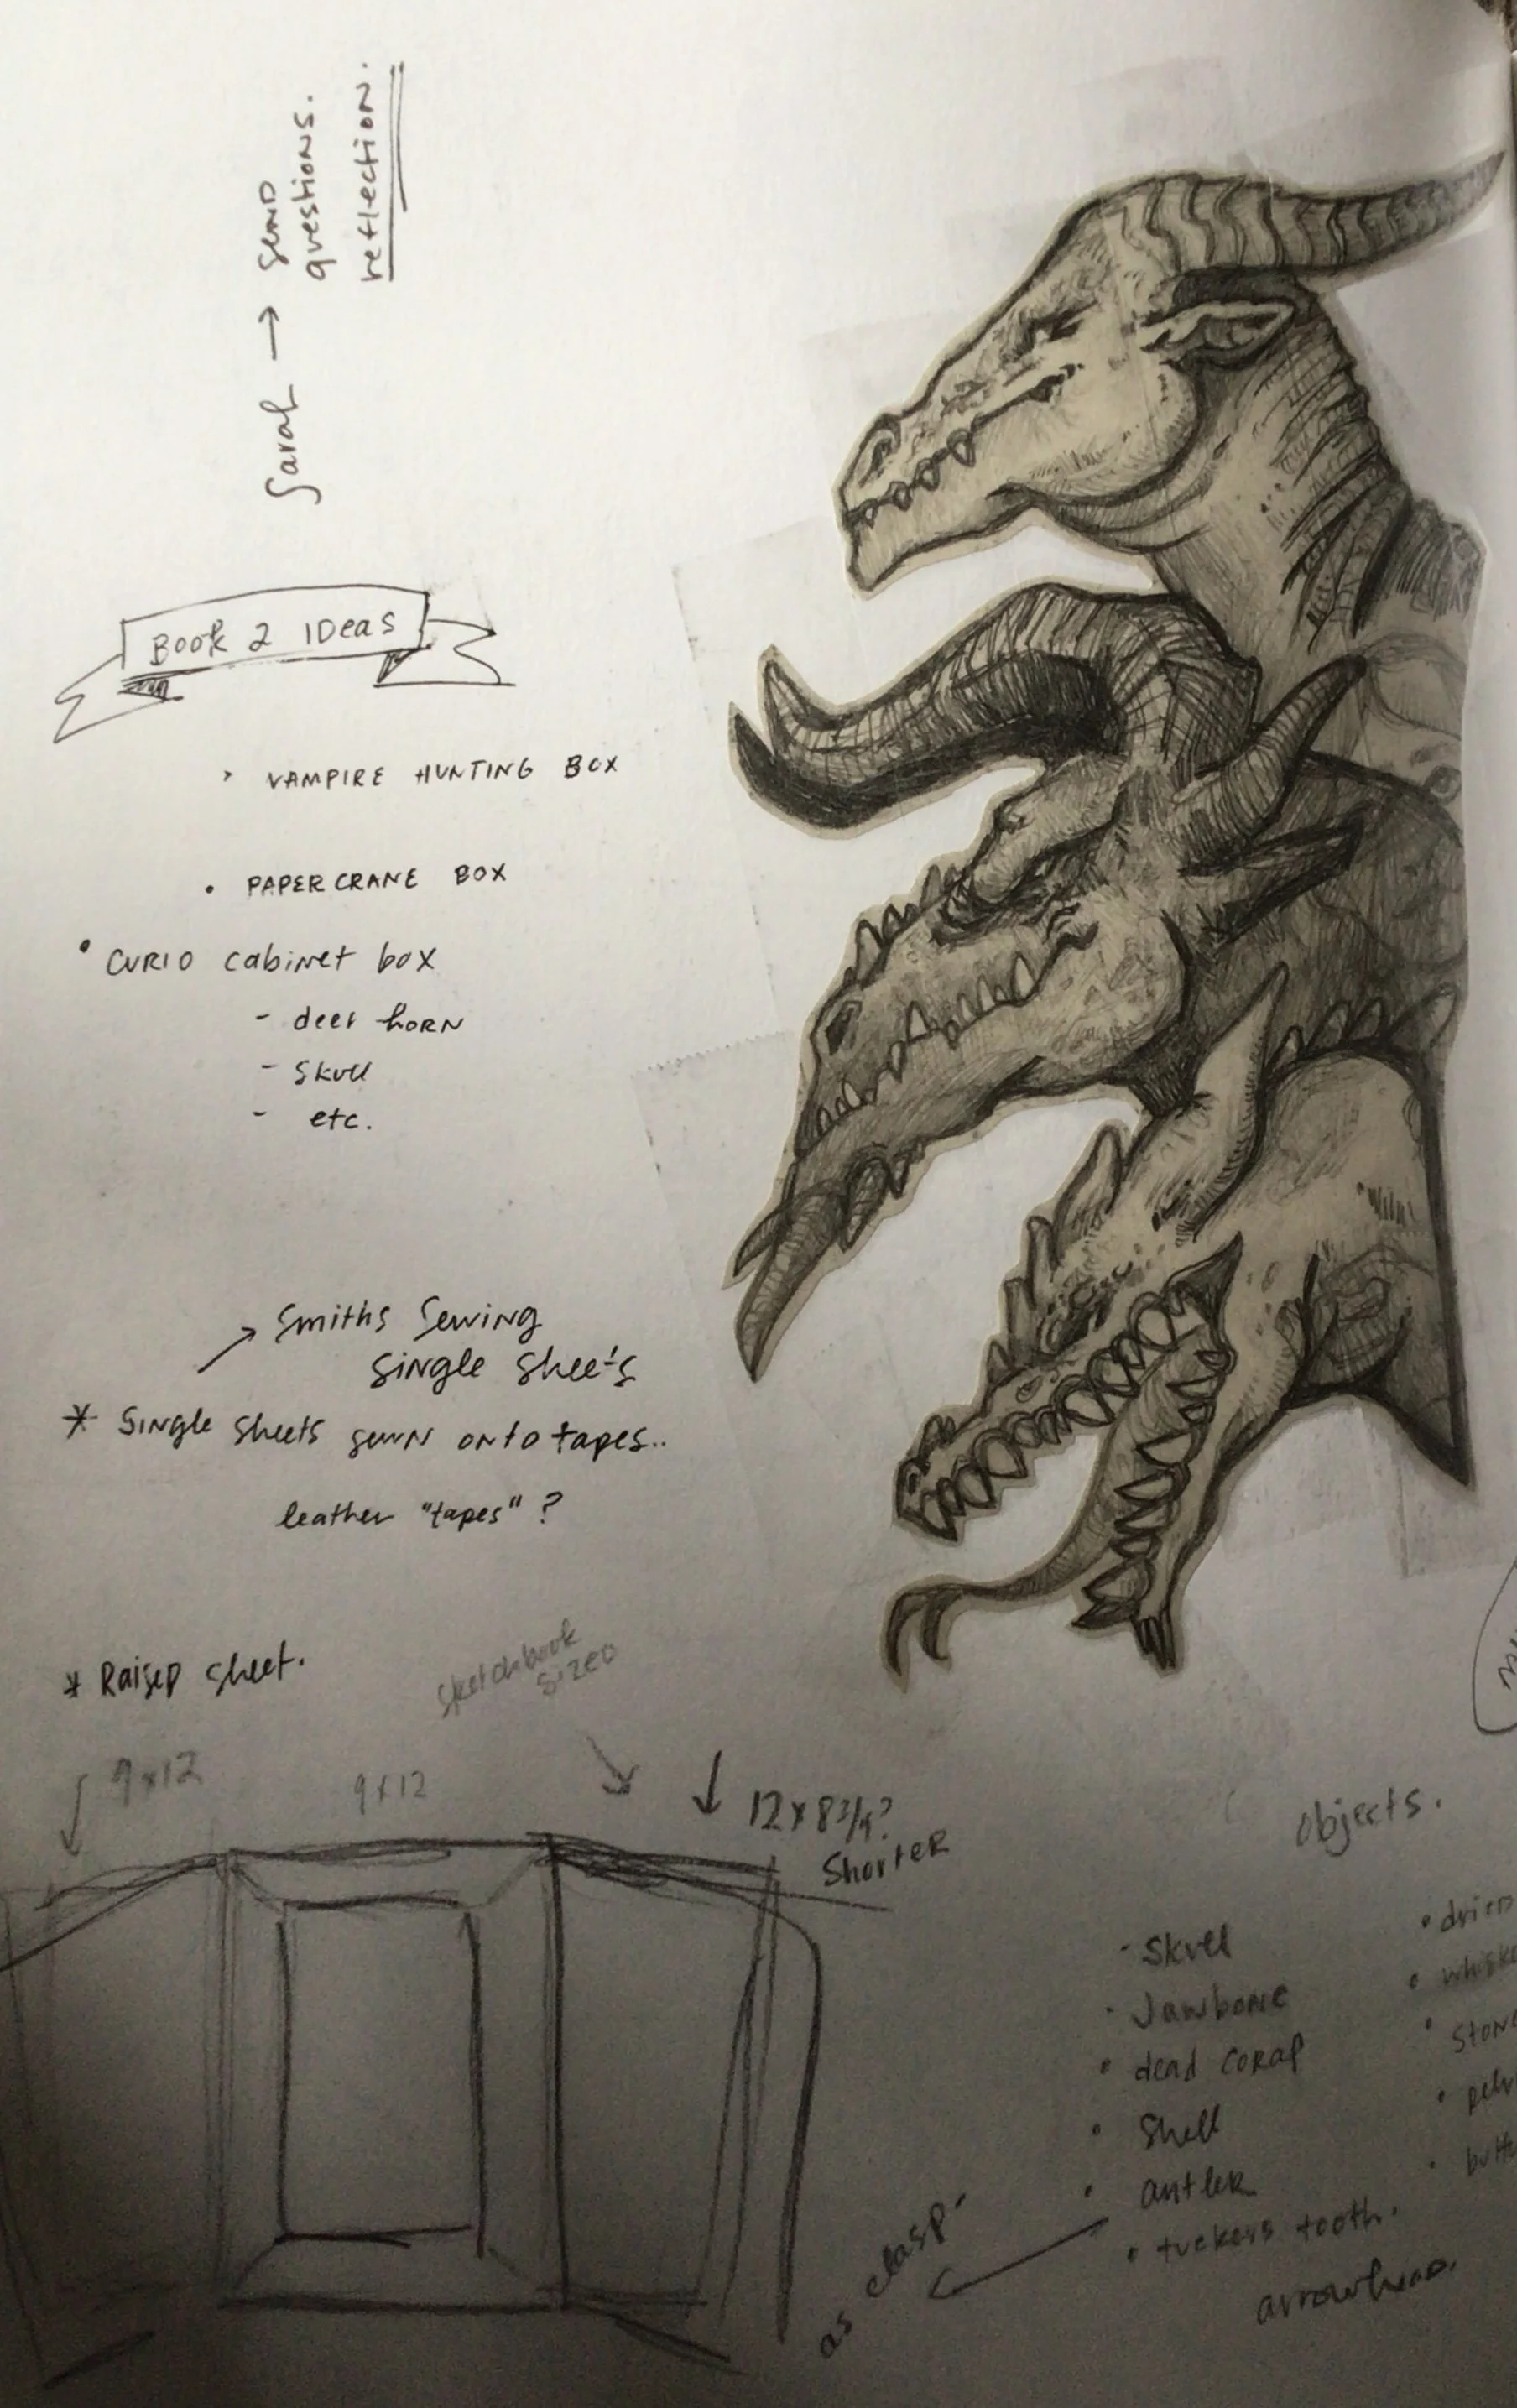 Sarah → SEND
questions.
reflection.
Book 2 IDeas
VAMPIRE HUNTING BOX
• PAPER CRANE BOX
• CURIO cabinet box
- deer hORN
- Skull
- etc.
→ Smiths Sewing
Single Sheets
* Single Sheets sewn onto tapes..
leather "tapes" ?
* Raised Sheet.
Sketchbook
SIZED
9x12
9x12
12 x 8 3/4?
Shorter
Objects.
• Skull
• Jawbone
• dead CORAl
• Shell
• antler
• tuckers tooth.
arrowhead.
as clasp.
• dried
•
• Stone
•
•